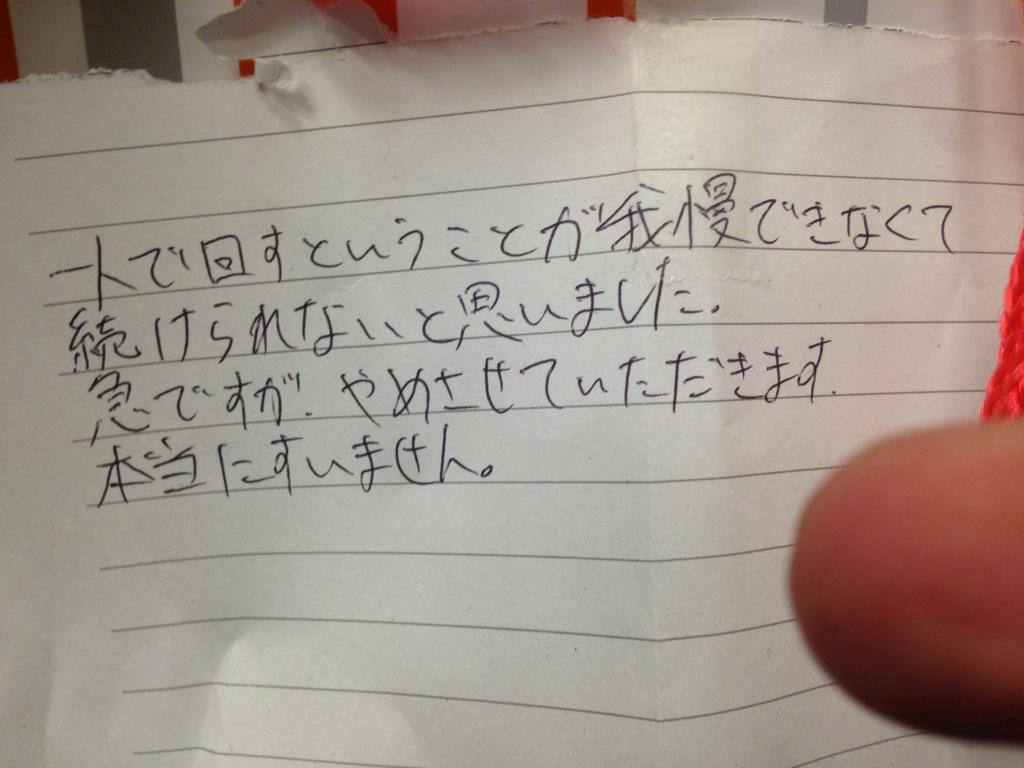 一人で回すということが我慢できなくて
続けられないと思いました。
急ですが、やめさせていただきます。
本当にすいません。